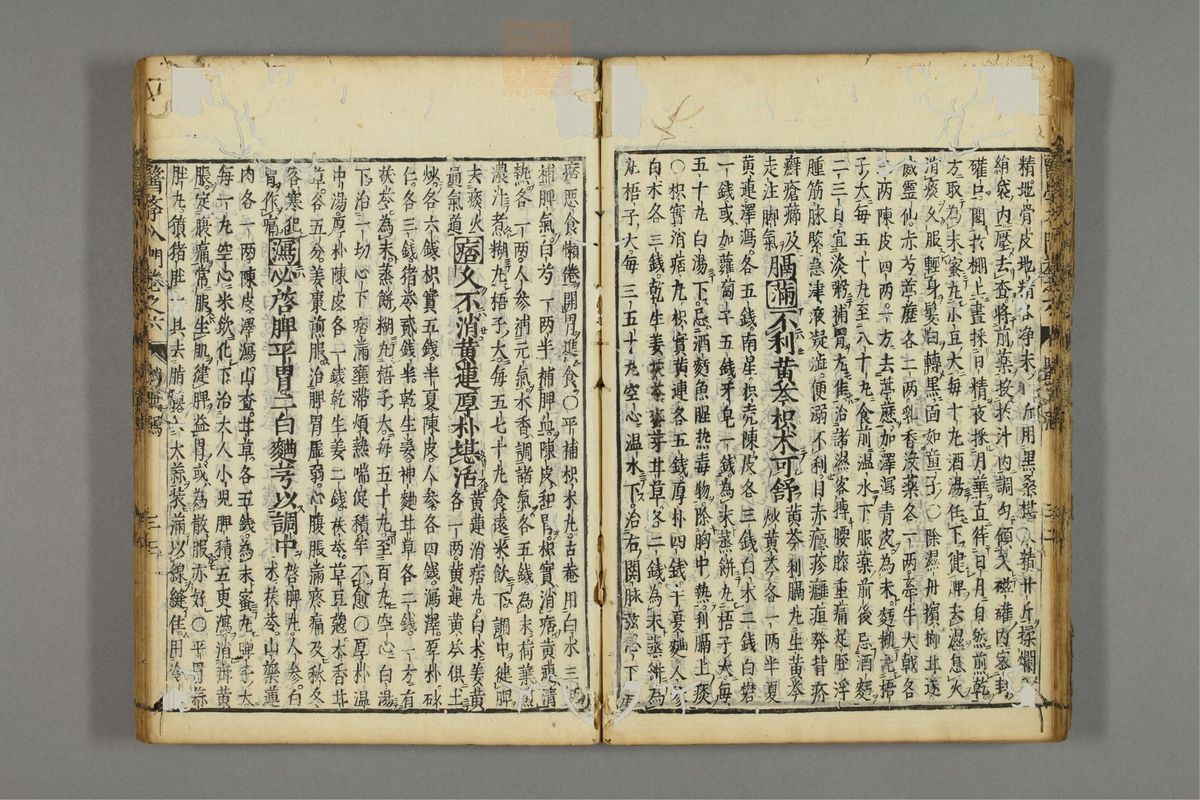 精地骨皮地精各淨末斤用黑桑椹
絹袋內壓去查將前藥投於汁內調勻傾入磁礶內密封
礶口閣於棚上晝採日精夜採月華直待日月自然煎乾
方取為末蜜丸小豆大每十丸酒湯任下健脾去濕息火
消痰久服輕身髮白轉黑面如童子○除濕丹檳榔甘遂
威靈仙赤芍葶藶各二兩乳香沒藥各一兩牽牛大戟各
三兩陳皮四兩一方去葶藶加澤瀉青皮為末麵糊丸梧
子大每五十丸至八十丸食前溫水下服藥前後忌酒麵
二三日宜淡粥補胃尤佳治諸濕客搏腰膝重痛足脛浮
腫筋脉緊急津液凝澁便溺不利目赤癮疹癰疽發背疥
癬瘡瘍及走注脚氣
膈滿不利黃芩枳朮可舒
黃芩利膈丸生黃芩炒黃芩各一兩半夏
黃連澤瀉各五錢南星枳壳陳皮各三錢白朮二錢白礬
一錢或加蘿蔔子五錢牙皂一錢為末蒸餅丸梧子大每
五十丸白湯下忌酒麵魚腥熱毒物除胸中熱利膈上痰
○枳實消痞丸枳實黃連各五錢厚朴四錢半夏麯人參
白朮各三錢乾生姜茯苓麥芽甘草各二錢為末蒸餅為
丸梧子大每三五十丸空心溫水下治右關脉弦心下虛
痞惡食懶倦開胃進食○平補枳朮丸古菴用白朮三兩
補脾氣白芍一兩半補脾血陳皮和胃枳實消痞黃連清
熱各一兩人參補元氣木香調諸氣各五錢為末荷葉
濃汁煮糊丸梧子大每五七十丸食遠米飲下調中健脾
去痰火
通氣道
痞久不消黃連厚朴堪活
黃連消痞丸白朮姜黃
各一兩黃連黃芩俱土
炒各六錢枳實五錢半夏陳皮人參各四錢瀉澤厚朴砂
仁各三錢猪苓貳錢半乾生姜神麯甘草各二錢一方有
茯苓為末蒸餅糊丸梧子大每五十丸至百丸空心白湯
下治一切心下痞滿壅滯煩熱喘促積年不愈○厚朴溫
中湯厚朴陳皮各一錢乾生姜二錢茯苓草豆蔻木香甘
草各五分姜棗煎服治脾胃虛弱心腹脹滿疼痛及秋冬
客寒犯
胃作痛
瀉必啓脾平胃二白麯芎以調中
啓脾丸人參白
朮茯苓山藥蓮
肉各一兩陳皮澤瀉山查甘草各五錢為末蜜丸彈子大
每一丸空心米飲化下治大人小兒脾積五更瀉消疳黃
脹定腹痛常服生肌健脾益胃或為散服亦好○平胃蒜
肚丸獖猪肚一具去脂大蒜裝滿以線縫住用冷
醫學入門卷之六